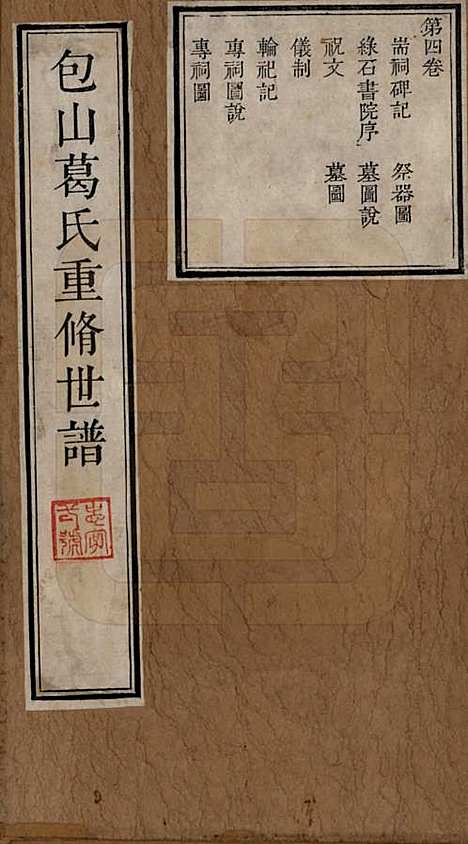 第四卷
耑祠碑記　祭器圖
綠石書院序　墓圖說
祝文　墓圖
儀制
輪祀記
專祠圖說
專祠圖
包山葛氏重脩世譜